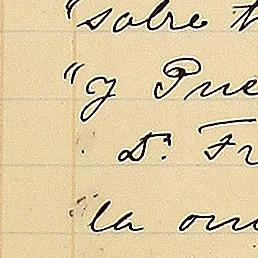 "sobre
"y Pue
Dr. Fr
la